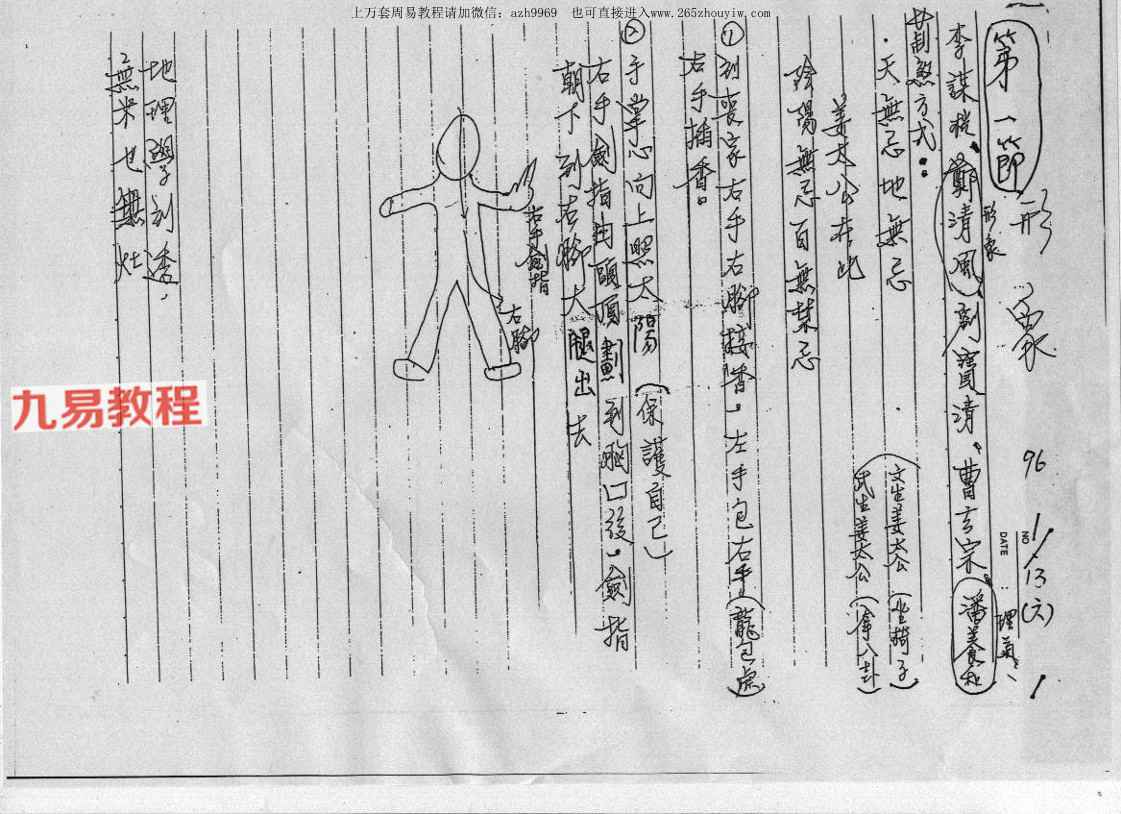 上万套周易教程请加微信：azh9969　也可直接进入www.265zhouyiw.com
96 1/13(六) 1
NO
DATE
第一節 形象
理氣
李謀税、鄭清風、劉寶清、曹玄宗、潘美食
形象
制煞方式：
．天無忌地無忌
文生姜太公（坐椅子）
武生姜太公（拿八卦）
姜太公在此
陰陽無忌百無禁忌
①到喪家右手右腳接香，左手包右手（龍包虎）
右手插香。
②手掌心向上照太陽（保護自己）
右手劍指由頭頂劃到胸口後，劍指
朝下到右腳大腿出去
右手劍指
右腳
地理學到透，
無米也無灶
九易教程